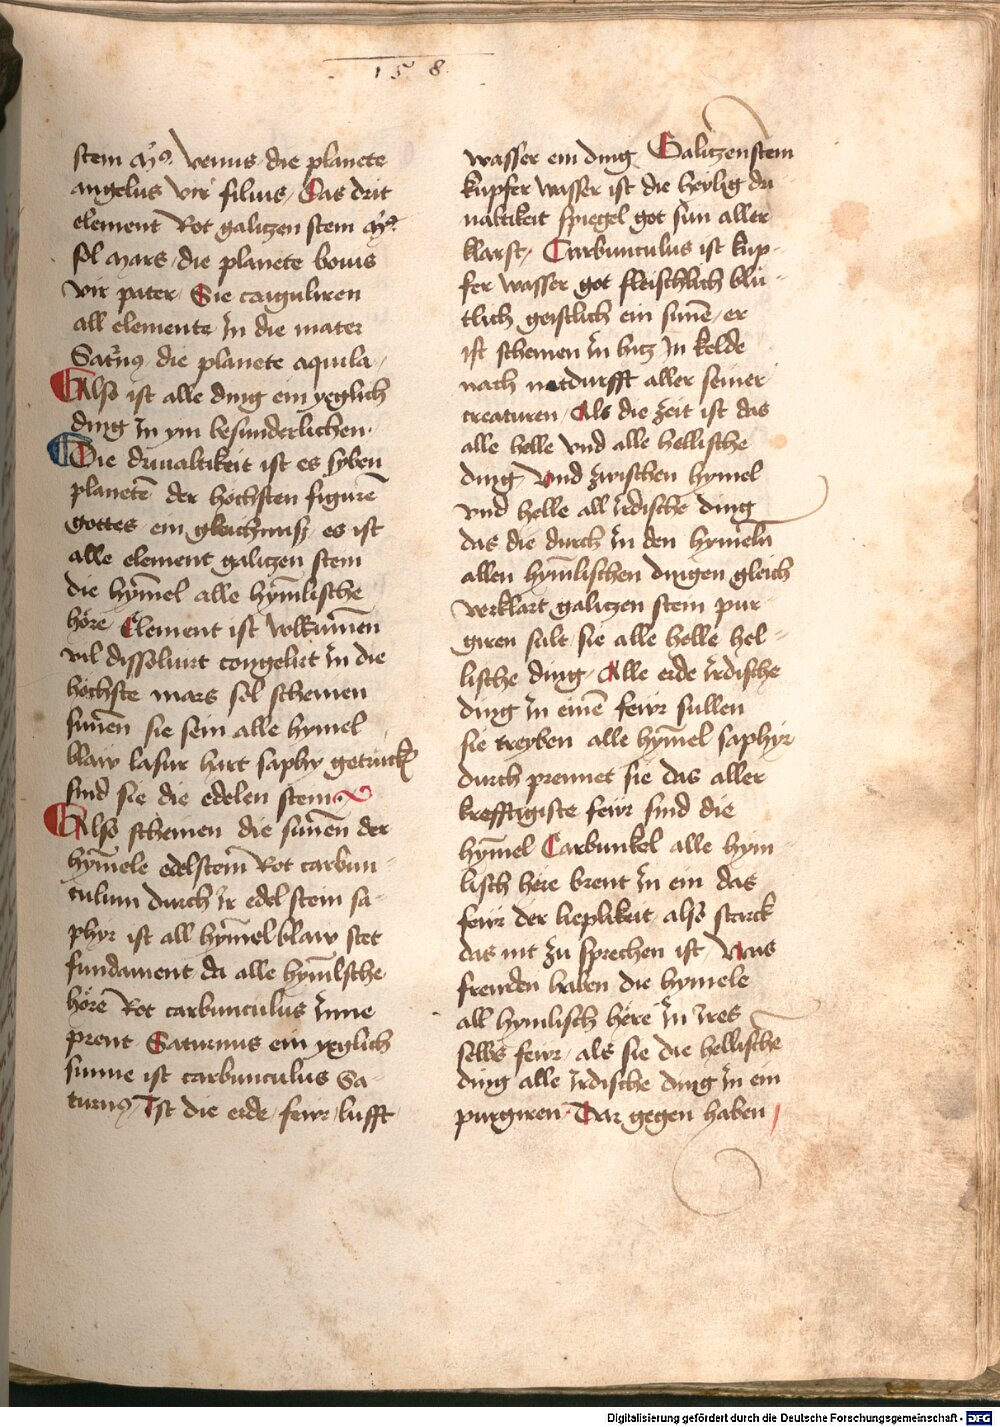 158
stem mꝰ. venus die planete
angelus vir filius, Das drit
element Rot galiczen stem mꝰ.
sol mars die planete bouis
vir pater, Sie caiguliren
all elemente Jn die mater
Saturꝰ die planete aquila,
Also ist alle ding ein yeglich
ding Jn ym besunderlichen.
Die driualtikeit ist es syben
planetē der höchsten figurē
gottes ein gleichnuß es ist
alle element galiczen stem
die hym̄el alle hym̄lische
höre Element ist volkum̄en
vil dissoluirt congelirt Jn die
höchste mars sol scheinen
sun̄en sie sein alle hymel
blaw lasur hart saphir
sind sie die edelen stem.
Also scheinen die sun̄en der
hym̄ele edelstein Rot carbun
culum durch Jr edel stein sa
phyr ist all hym̄el blaw stet
fundament da alle hym̄lsche
höre Rot carbunculus Jnne
prent Saturnus ein yeglich
sunne ist carbunculus Sa
turnꝰ Ist die erde feiwr lufft
wasser ein ding Galiczenstein
kupfer wasser ist die heylig dri
ualtikeit spiegel got sun aller
klarst, Carbunculus ist kup-
fer wasser got fleischlich blu-
tlich geistlich ein sun̄e er
ist scheinen Jn hicz Jn kelde
nach notdurfft aller seiner
creaturen Als die zeit ist das
alle helle vnd alle hellische
ding vnd zwischen hymel
vnd helle all Jrdische ding
das die durch Jn den hymeln
allen hym̄lischen dingen gleich
verklart galiczen stem pur
giren salt sie alle helle hel-
lische ding Alle erde Jrdische
ding Jn einē feiwr sullen
sie treyben alle hym̄el saphyr
durch prennet sie das aller
krefftigiste feiwr sind die
hym̄el Carbunkel alle hym-
lisch here brent Jn ein das
feiwr der lieplikeit also starck
das nit zu sprechen ist was
freuden haben die hymele
all hymlisch here Jn Jres
selbs feiwr als sie die hellische
ding alle Jrdische ding Jn ein
purgiren Dar gegen haben
Digitalisierung gefördert durch die Deutsche Forschungsgemeinschaft - DFG